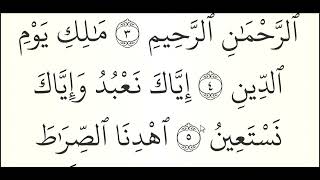 ٱلرَّحْمَـٰنِ ٱلرَّحِيمِ ٣ مَـٰلِكِ يَوْمِ
ٱلدِّينِ ٤ إِيَّاكَ نَعْبُدُ وَإِيَّاكَ
نَسْتَعِينُ ٥ ٱهْدِنَا ٱلصِّرَٰطَ